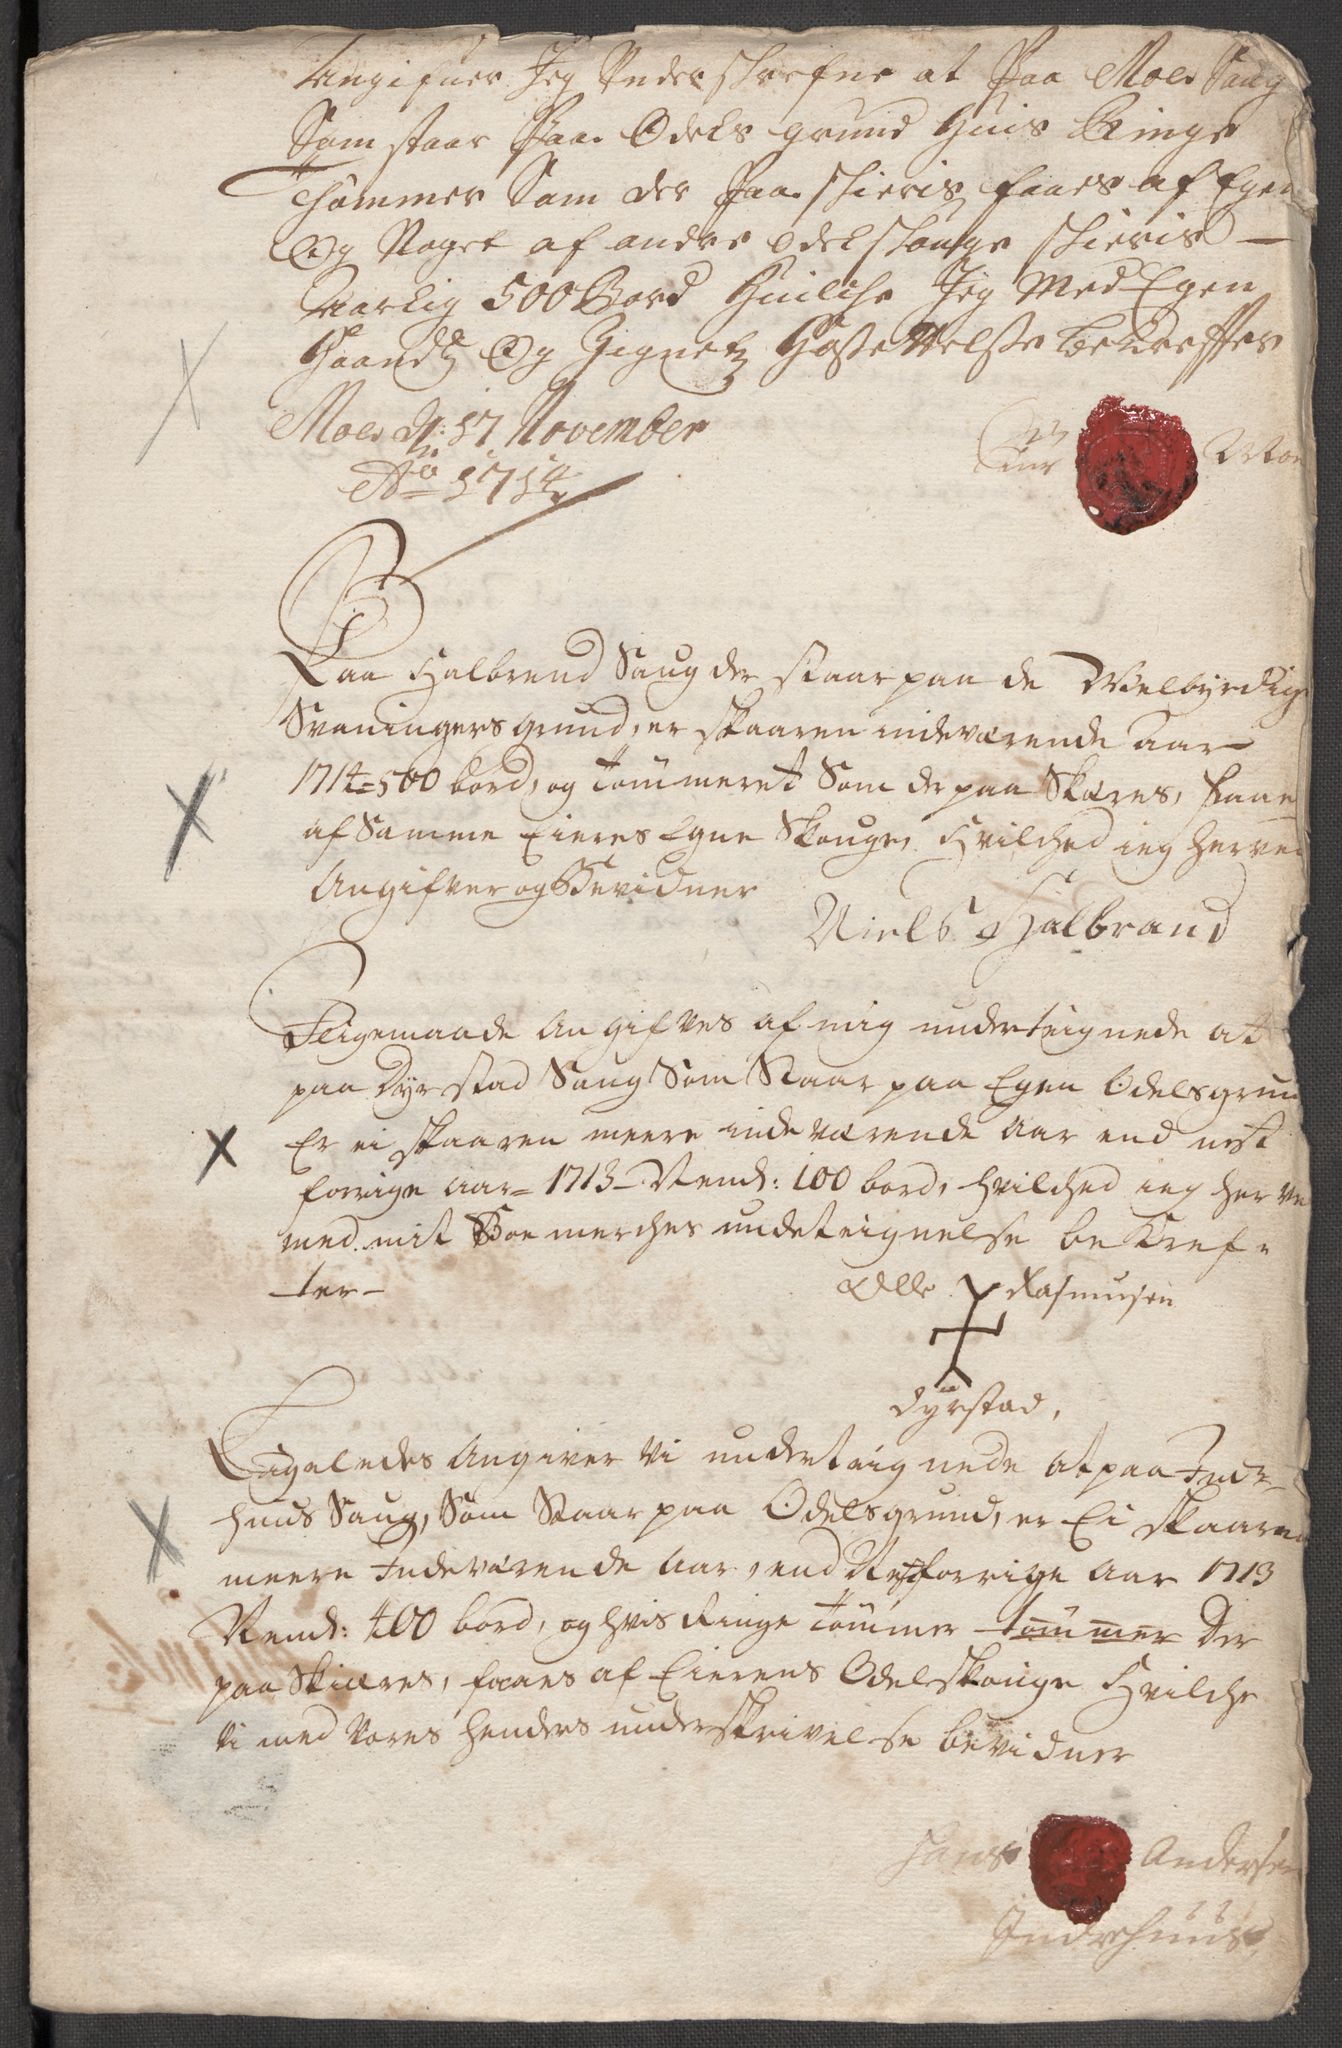 Angifuer Jeg Underschrefne at Paa Moe Saug
Som staar Paa Odels grund Huis Ringe
Thømmer Som der Paa schieris faaes af Egen
Og Noget af andre odel schouge schieris
Aarlig 500 Bord Huilche Jeg Med Egen
Haandz Og Zignetz Hosettelse bekreffter
Moe d: 17 November
Ao 1714
Moe
Paa Halbrend Saug der staar paa de Welbyrdige
Svaningers grund, er skaaren indeværende Aar
1714 = 500 bord, og Tømmeret Som der paa Skæres, faaes
af Samme Eieres Egne Skouge, Hvilched ieg herved
Angifver og Bevidner
Niels Halbrand
Ligemaade Angifves af mig underteignede at
paa Dyrstad Saug Som Staar paa Egen Odelsgrund
Er ei skaaren meere indeværende Aar end nest
forrige aar = 1713 - Nembl: 100 bord, hvilched ieg herved
med mit Boemerches undeteignelse bekref-
ter -
Olle Rasmusen
dyrstad,
Ligeledes Angiver Vi underteignede at paa Indre-
huus Saug, Som Staar paa Odelsgrund, er Ei skaaren
meere Indeværende Aar, end Nestforrige Aar 1713
Nembl: 400 bord, og hvis Ringe Tømmer tømmer Der
paa Skiæres, faaes af Eierens Odelskouge Hvilche
Vi med Vores henders underskrivelse bevidner
Hans Andersen
Indrehuus